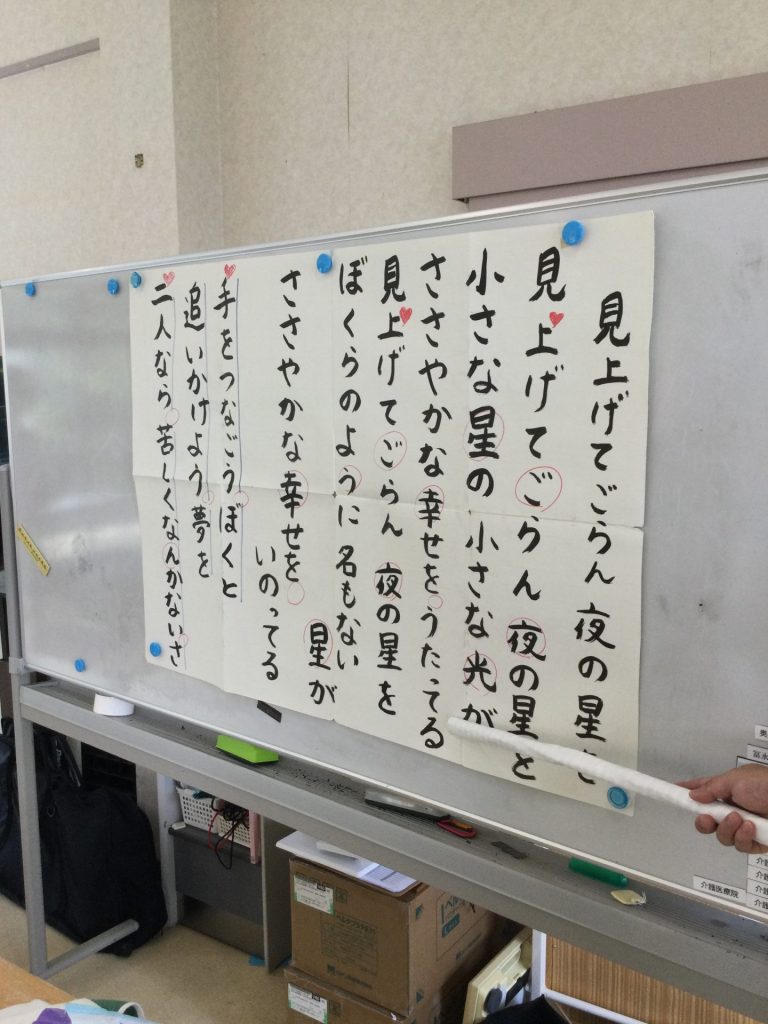 見上げてごらん 夜の星を
見上げてごらん 夜の星を
小さな星の 小さな光が
ささやかな幸せをうたってる
見上げてごらん 夜の星を
ぼくらのように 名もない
星が
ささやかな幸せを
いのってる
手をつなごうぼくと
追いかけよう夢を
二人なら苦しくなんかないさ
介護医療院